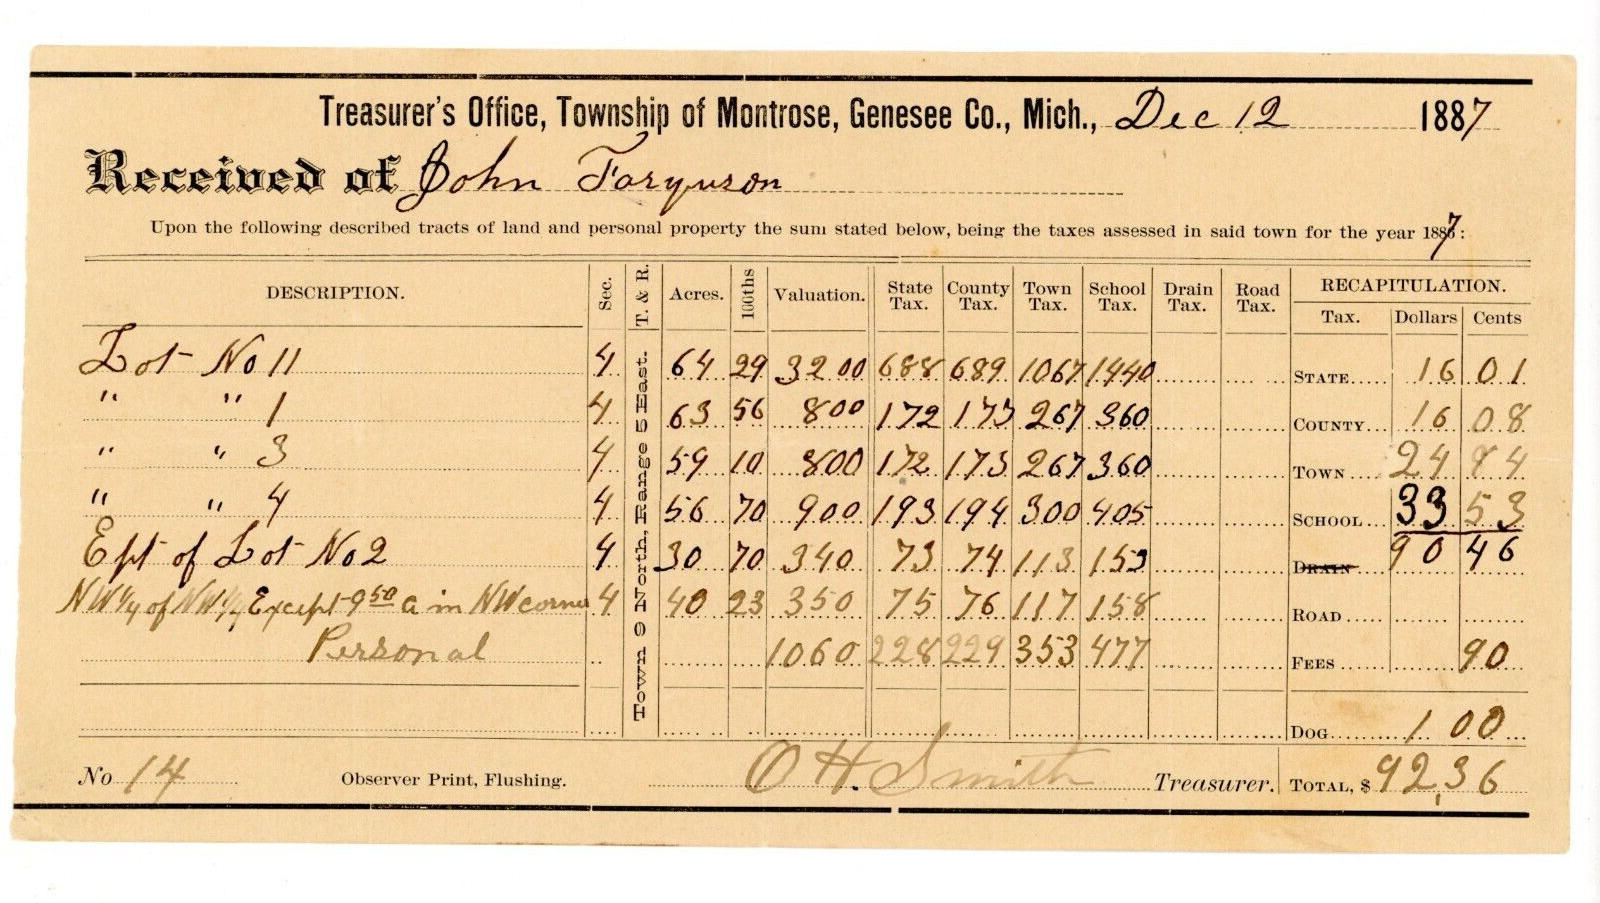 Treasurer's Office, Township of Montrose, Genesee Co., Mich., Dec 12 1887
Received of John Forguson
Upon the following described tracts of land and personal property the sum stated below, being the taxes assessed in said town for the year 1887:
DESCRIPTION. Sec. T. & R. Acres. 100ths Valuation. State Tax. County Tax. Town Tax. School Tax. Drain Tax. Road Tax. RECAPITULATION.
Tax. Dollars Cents
Town 9 North, Range 5 East.
Lot No 11 4 64 29 3200 688 689 1067 1440 STATE 16 01
" " 1 4 63 56 800 172 173 267 360 COUNTY 16 08
" " 3 4 59 10 800 172 173 267 360 TOWN 24 84
" " 4 4 56 70 900 193 194 300 405 SCHOOL 33 53
E pt of Lot No 2 4 30 70 340 73 74 113 153 DRAIN 90 46
NW 1/4 of NW 1/4 Except 9 50 a in NW corner 4 40 23 350 75 76 117 158 ROAD
Personal 1060 228 229 353 477 FEES 90
DOG 1 00
No 14 Observer Print, Flushing. O H. Smith Treasurer. TOTAL, $ 92,36